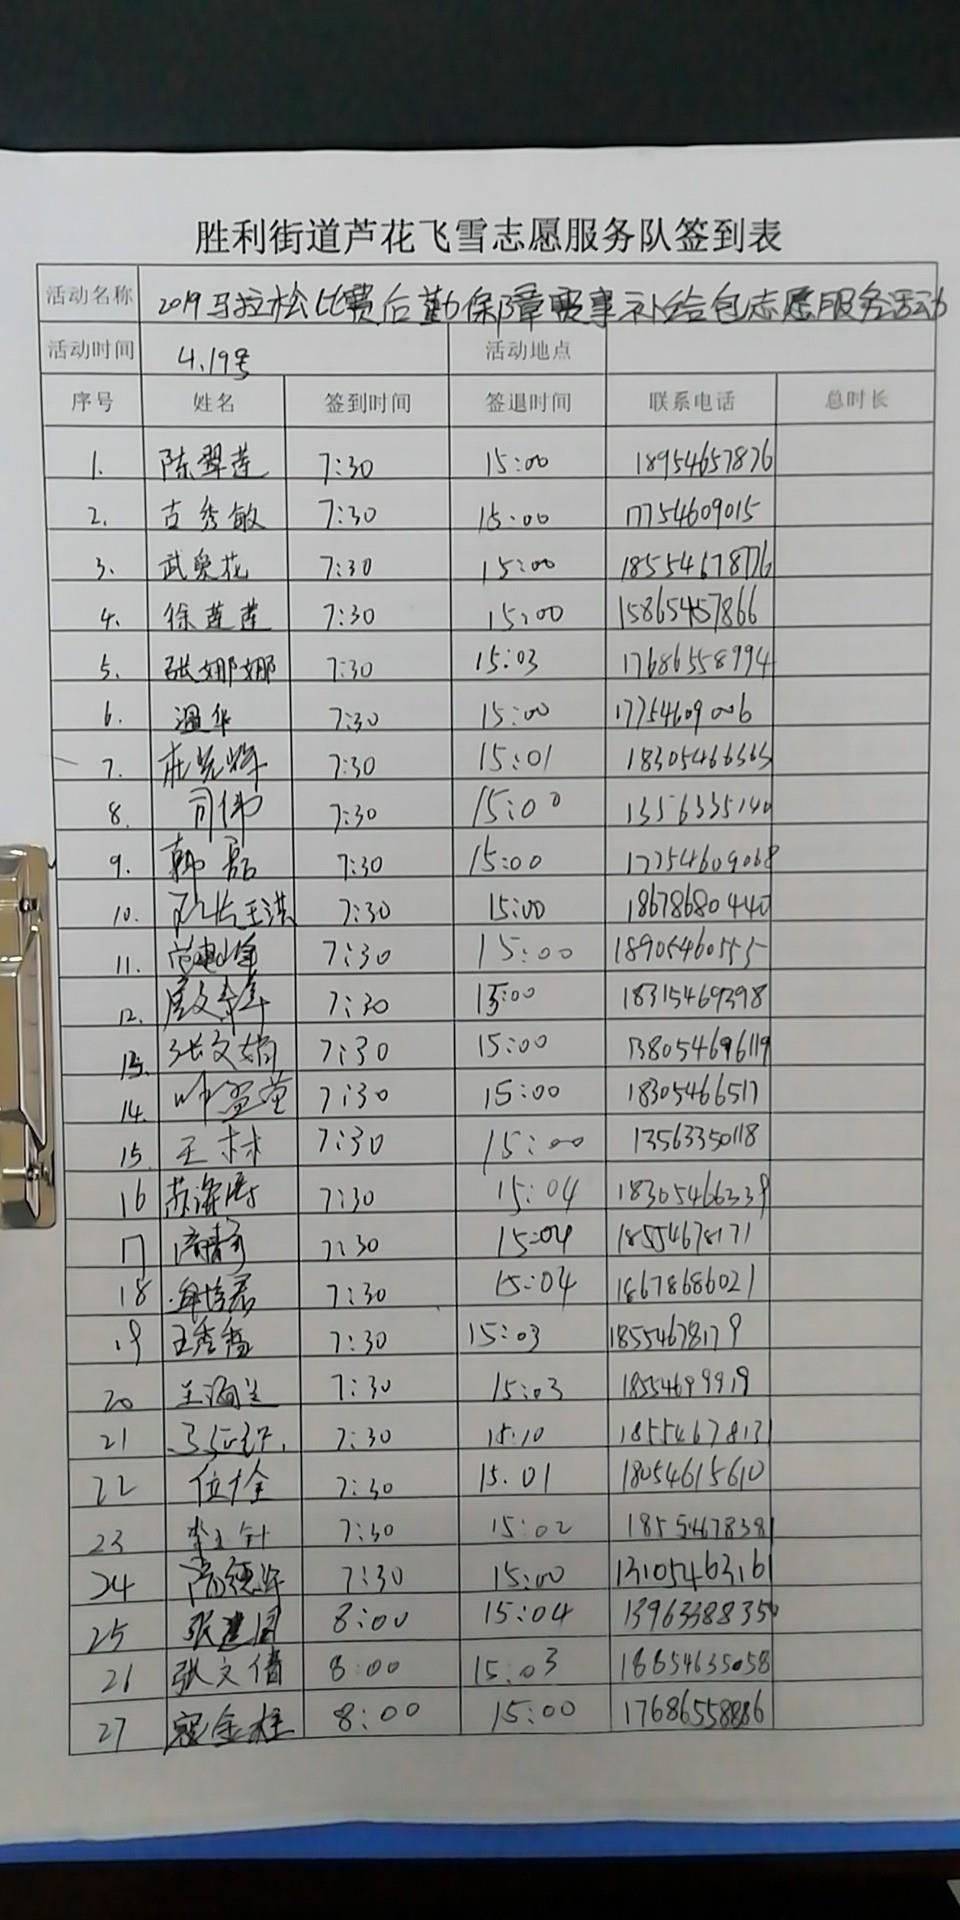 胜利街道芦花飞雪志愿服务队签到表
活动名称 2019马拉松比赛后勤保障赛事补给包志愿服务活动
活动时间 4.19号 活动地点
序号 姓名 签到时间 签退时间 联系电话 总时长
1. 陈翠莲 7:30 15:00 18954657876
2. 古秀敏 7:30 15:00 17754609015
3. 武奂花 7:30 15:00 18554678776
4. 徐莲莲 7:30 15:00 15865457866
5. 张娜娜 7:30 15:03 17686558994
6. 温华 7:30 15:00 17754609006
7. 7:30 15:01
8. 司伟 7:30 15:00 1356335140
9. 韩磊 7:30 15:00 17754609068
10. 7:30 15:00 18678680440
11. 7:30 15:00 18905460555
12. 7:30 15:00 18315469398
13. 张文娟 7:30 15:00 13805469619
14. 7:30 15:00 18305466517
15. 王林 7:30 15:00 13563350118
16 苏海涛 7:30 15:04 18305466339
17 7:30 15:04 18554678171
18 7:30 15:04 18678686021
19 王秀 7:30 15:03 18554678179
20 王海兰 7:30 15:03 18554699919
21 7:30 15:10 18554678131
22 位全 7:30 15.01 18054615610
23 7:30 15:02 18554678381
24 7:30 15:00 13105463161
25 张建国 8:00 15:04 13963388350
26 张文倩 8:00 15:03 18854635058
27 寇金柱 8:00 15:00 17686558886